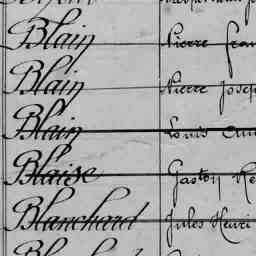 Blain Pierre Fran
Blain Pierre Josep
Blain Louis
Blaise Gaston
Blanchard Jules Henri